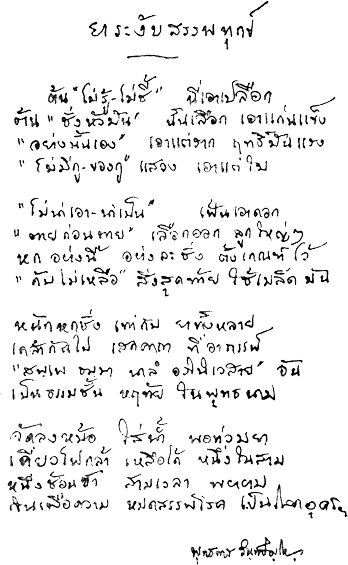 ยาระงับสรรพทุกข์
ต้น "ไม่รู้-ไม่ชี้" นี่เอาเปลือก
ต้น "ชั่งหัวมัน" นั้นเลือก เอาแก่นแข็ง
"อย่างนั้นเอง" เอาแต่ราก ฤทธิ์มันแรง
"ไม่มีกู-ของกู" แสวง เอาแต่ใบ
"ไม่น่าเอา-น่าเป็น" เฟ้นเอาดอก
"ตายก่อนตาย" เลือกออก ลูกใหญ่ๆ
หกอย่างนี้ อย่างละชั่ง ตั้งเกณฑ์ไว้
"ดับไม่เหลือ" สิ่งสุดท้าย ใช้เมล็ดมัน
หนักหกชั่ง เท่ากับ ยาทั้งหลาย
เคล้ากันไป เสกคาถา ที่อาถรรพ์
"สพฺเพ ธมฺมา นาลํ อภินิเวสาย" อัน
เป็นธรรมชั้น หฤทัย ในพุทธนาม
จัดลงหม้อ ใส่น้ำ พอท่วมยา
เคี่ยวไฟกล้า เหลือได้ หนึ่งในสาม
หนึ่งช้อนชา สามเวลา พยายาม
กินเพื่อความ หมดสรรพโรค เป็นโลกอุดรฯ
พุทธทาส อินฺทปญฺโญ